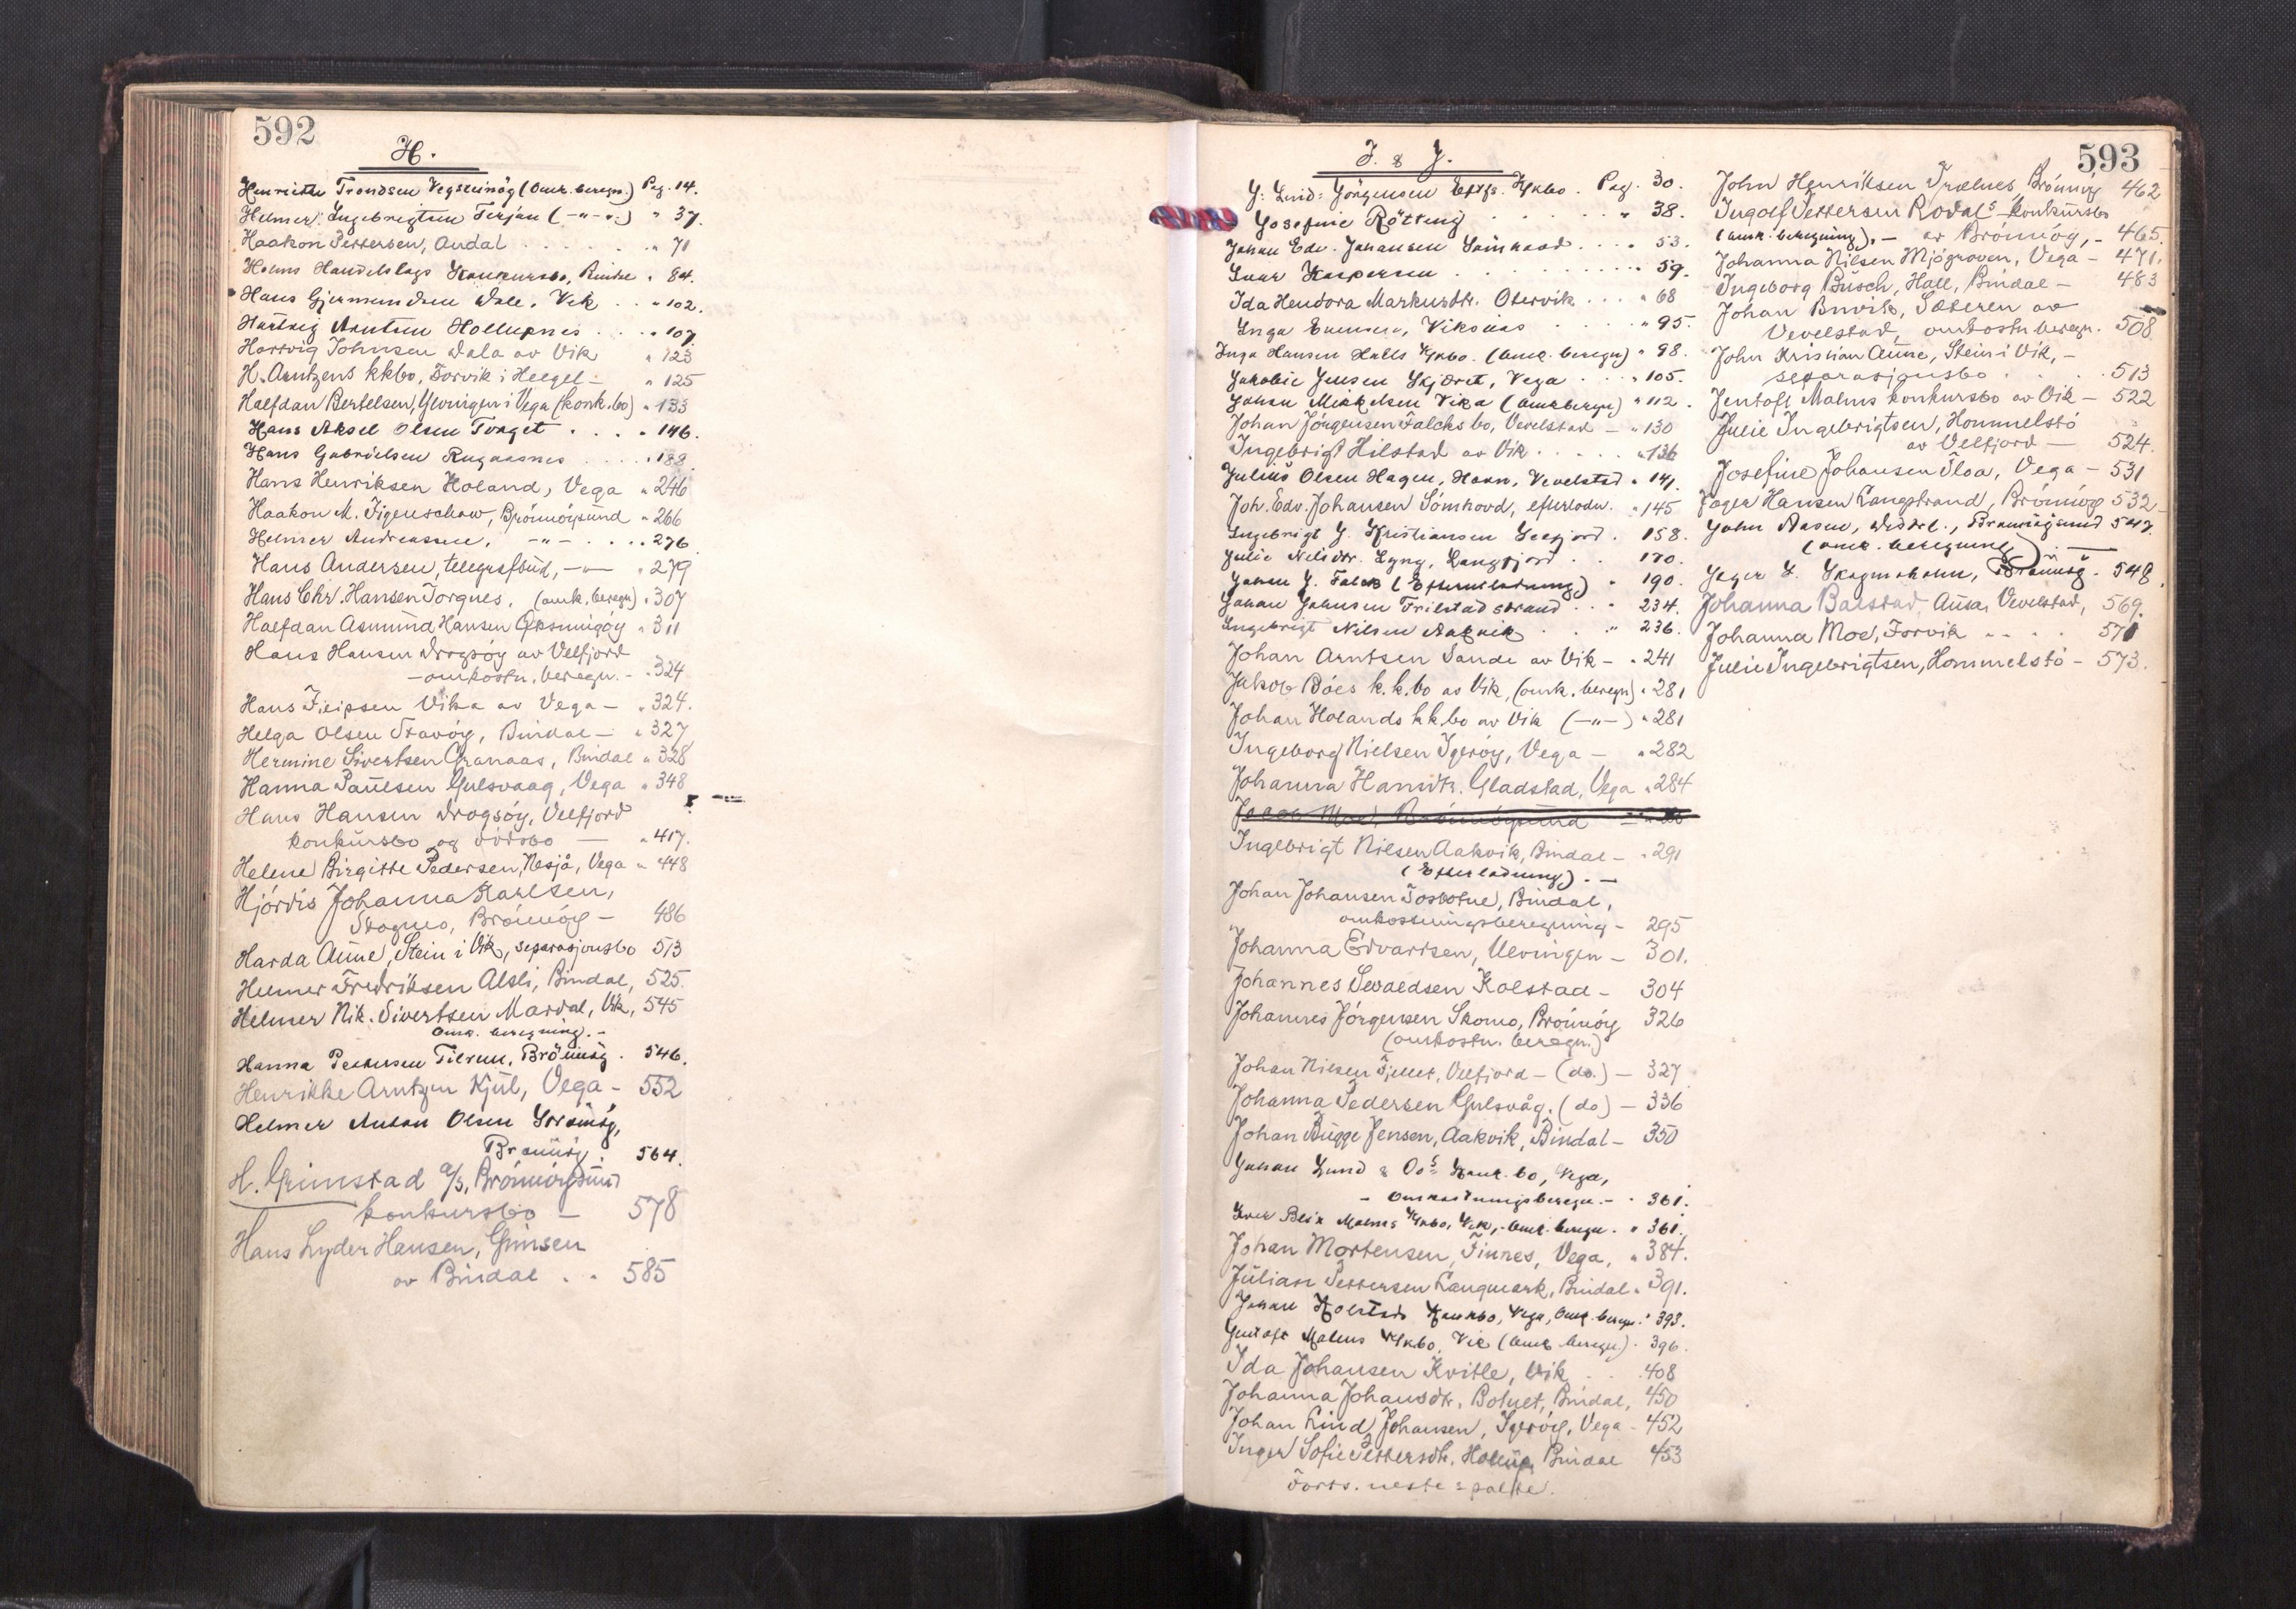 592
H.
Henriette Trondsen Vegsteinøg (Omk. beregn.) Pag. 14.
Helmer Ingebrigtsen Terjan (-"-".) " 37.
Haakon Pettersen, Andal . . . . " 71
Holms Handelslags Konkursbo, Bindal " 84.
Hans Gjermundsen Dale, Vik . . " 102.
Hartvig Arntsen Hollupnes . . . . " 107
Hartvig Johnsen Dala av Vik " 123
H. Arntzens kkbo, Forvik i Helgel - " 125
Halfdan Bertelsen, Ylvingen i Vega (konk.bo) " 133
Hans Aksel Olsen Torget . . . . " 146.
Hans Gabrielsen Rugaasnes . . . . " 188
Hans Henriksen Holand, Vega " 246
Haakon M. Figenschow, Brönnöysund " 266
Helmer Andreassen, -"- . . . . 276
Hans Andersen, telegrafbud, -"- " 279
Hans Chr. Hansen Torgnes, (omk. beregn) " 307
Halfdan Asmund Hansen " 311
Hans Hansen Drogsöy av Velfjord
- omkostn. beregn. - " 324
Hans Filipsen Vika av Vega - " 324.
Helga Olsen Stavöy, Bindal - " 327
Hermine Sivertsen Granaas, Bindal " 328
Hanna Paulsen Gulsvaag, Vega " 348
Hans Hansen Drogsöy, Velfjord
konkursbo og dödsbo — " 417.
Helene Birgitte Pedersen, Nesjå, Vega " 448
Hjördis Johanna Karlsen,
Skogmo, Brönnöy - 486
Harda Aune, Stein i Vik, separasjonsbo 513
Helmer Fredriksen Alsli, Bindal, 525.
Helmer Nik. Sivertsen Mardal, Vik, 545
Omk. beregning. -
Hanna Pettersen Tilrem, Brönnöy . 546.
Henrikke Arntzen Kjul, Vega - 552
Helmer Anton Olsen
Brönnöy . 564.
H. Grimstad a/s, Brönnöysund
konkursbo - 578
Hans Lyder Hansen, Gimsen
av Bindal . . 585
593
I. & J.
J. Lind: Jörgensen Eftfs. Kkbo . Pag. 30.
Josefine Rötting . . . . . " 38.
Johan Edv. Johansen Sömhovd . . . . 53.
Ivar Kaspersen . . . . . . . 59.
Ida Hendora Markusdtr. Otervik . . . " 68
Inga Evensen, Viksaas . . . . " 95.
Inga Hansen Halls Kkbo. (Omk. beregn) " 98.
Jakobie Jensen Skjæret, Vega . . . " 105.
Johan Mikkelsen Vika (Omk beregn) " 112.
Johan Jörgensen Falcks bo, Vevelstad - " 130
Ingebrigt Hilstad av Vik . . . . . " 136
Julius Olsen Hagen, Havn, Vevelstad " 141.
Joh. Edv. Johansen Sömhovd, efterlodn. " 145
Ingebrigt J. Kristiansen Leefjord . 158.
Julie Nelsdtr. Lyng, Langfjord . . 170.
Johan J. Falck (Efterutlodning) " 190.
Johan Johnsen Trilstadstrand . . " 234.
Ingebrigt Nilsen Aakvik . . " 236.
Johan Arntsen Sande av Vik - " 241
Jakob Böes k.k.bo av Vik, (omk. beregn) " 281
Johan Holands kk.bo av Vik (-"-) " 281
Ingeborg Nielsen Igeröy, Vega - " 282
Johanna Hansdtr. Gladstad, Vega " 284
Jacob Moe, Brönnöysund
Ingebrigt Nilsen Aakvik, Bindal - " 291
(Efterlodning). -
Johan Johansen Tosbotne, Bindal,
omkostningsberegning - 295
Johanna Edvartsen, Ulvingen - 301.
Johannes Sevaldsen Kolstad - 304
Johannes Jörgensen Skomo, Brönnöy 326
(omkostn. beregn.)
Johan Nilsen Fjellet, Velfjord - (do.) - 327
Johanna Pedersen Gulsvåg. (do) - 336
Johan Bugge Jensen, Aakvik, Bindal - 350
Johan Lund & Cos Konk. bo, Vega,
- Omkostningsberegn. - . 361.
Iver Blix Malmes Kkbo, Vik, - Omk. beregn. " 361.
Johan Mortensen, Finnes, Vega, " 384.
Julian Pettersen Langmark, Bindal " 391.
Johan Kolstads Konkbo, Vega, Omk. beregn. " 393.
Jentoft Malms Kkbo, Vik (Omk beregn.) . 396.
Ida Johansen Kvitle, Vik . . . 408
Johanna Johansdtr. Botnet, Bindal, 450
Johan Lind Johansen, Igeröy, Vega - 452
Inger Sofie Pettersdtr. Hollup, Bindal 453
Forts. neste spalte.
John Henriksen Trælnes Brönnöy 462
Ingolf Pettersen Rodals - konkursbo
(omk. beregning). - av Brönnöy, - 465.
Johanna Nilsen Mjögroven, Vega - 471.
Ingeborg Busch, Hall, Bindal - 483
Johan Buvik, Sæteren av
Vevelstad, omkostn beregn. 508
John Kristian Aune, Stein i Vik, -
separasjonsbo . . . . 513
Jentoft Malms konkursbo av Vik - 522
Julie Ingebrigtsen, Hommelstö
av Velfjord - 524.
Josefine Johansen Floa, Vega - 531
Jøger Hansen Langstrand, Brönnöy 532
John Aasen, Brönnöysund 547.
(omk. beregning) . —
Jøger L. Skogmoholm, Brönnöy . 548.
Johanna Baistad, Ausa, Vevelstad, 569.
Johanna Moe, Forvik . . . . 571
Julie Ingebrigtsen, Hommelstö - 573.